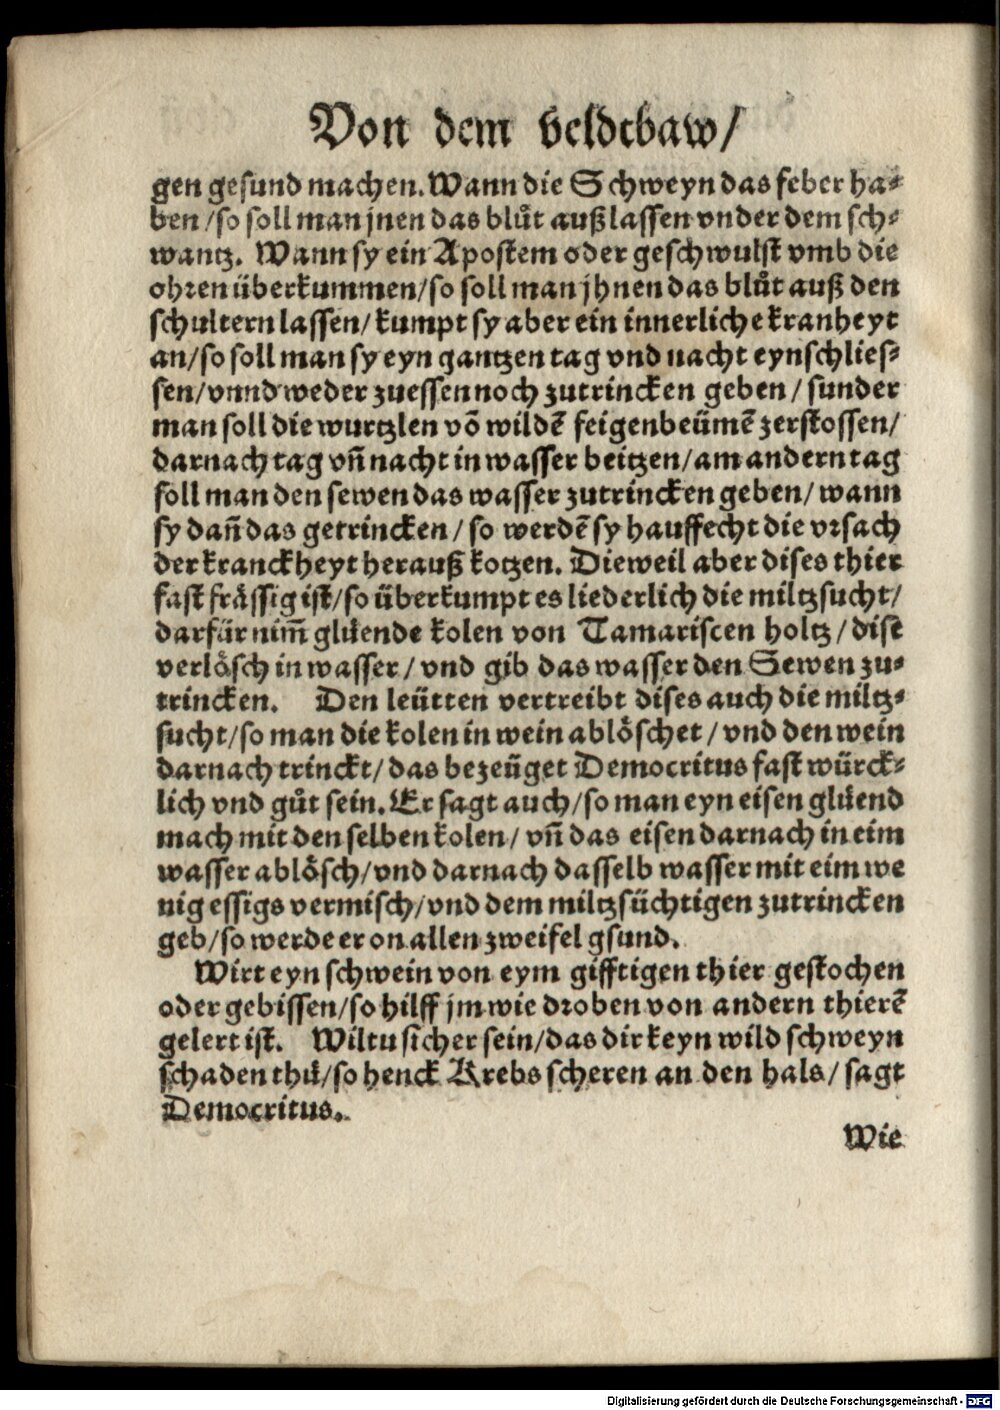 Von dem veldtbaw/
gen gesund machen. Wann die Schweyn das feber ha⸗
ben/so soll man jnen das blůt auß lassen vnder dem sch⸗
wantz. Wann sy ein Apostem oder geschwulst vmb die
ohren überkummen/so soll man jhnen das blůt auß den
schultern lassen/kumpt sy aber ein innerliche kranheyt
an/so soll man sy eyn gantzen tag vnd nacht eynschlies⸗
sen/vnnd weder zuessen noch zutrincken geben/sunder
man soll die wurtzlen võ wildẽ feigenbeümẽ zerstossen/
darnach tag vñ nacht in wasser beitzen/am andern tag
soll man den sewen das wasser zutrincken geben/wann
sy dañ das getrincken/so werdẽ sy hauffecht die vrsach
der kranckheyt herauß kotzen. Dieweil aber dises thier
fast frässig ist/so überkumpt es liederlich die miltzsucht/
darfür nim̃ glüende kolen von Tamariscen holtz/dise
verlösch in wasser/vnd gib das wasser den Sewen zu⸗
trincken. Den leütten vertreibt dises auch die miltz⸗
sucht/so man die kolen in wein ablöschet/vnd den wein
darnach trinckt/das bezeüget Democritus fast würck⸗
lich vnd gůt sein. Er sagt auch/so man eyn eisen glüend
mach mit den selben kolen/vñ das eisen darnach in eim
wasser ablösch/vnd darnach dasselb wasser mit eim we
nig essigs vermisch/vnd dem miltzsüchtigen zutrincken
geb/so werde er on allen zweifel gsund.
Wirt eyn schwein von eym gifftigen thier gestochen
oder gebissen/so hilff jm wie droben von andern thierẽ
gelert ist. Wiltu sicher sein/das dir keyn wild schweyn
schaden thü/so henck Krebs scheren an den hals/sagt
Democritus.
Wie
Digitalisierung gefördert durch die Deutsche Forschungsgemeinschaft - DFG